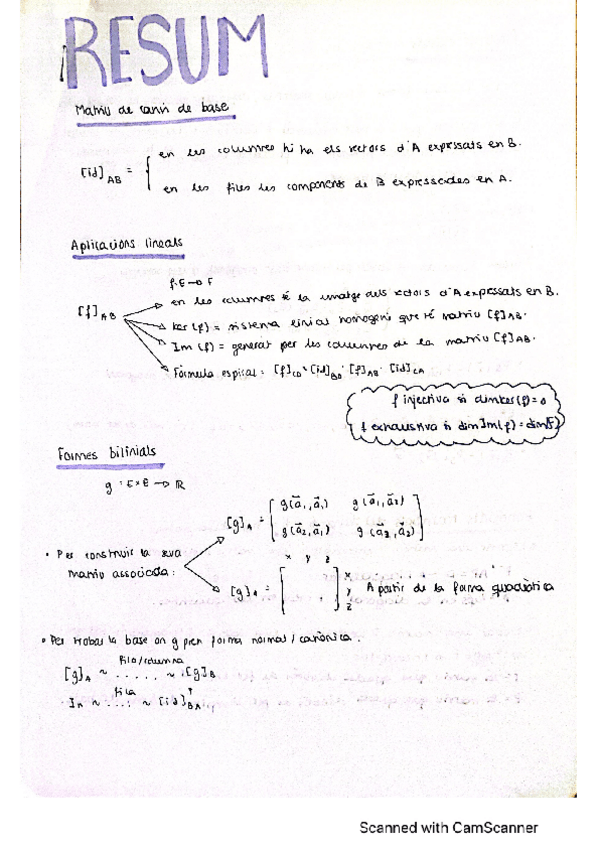 RESUM
Matriu de canvi de base
[id]AB = { en les columnes hi ha els vectors d'A expressats en B.
en les files les components de B expressades en A.
Aplicacions lineals
f: E → F
[f]AB
en les columnes té la imatge dels vectors d'A expressats en B.
Ker(f) = sistema linial homogeni que té matriu [f]AB.
Im(f) = generat per les columnes de la matriu [f]AB.
Fórmula espiral: [f]CD = [id]BD · [f]AB · [id]CA
f injectiva si dimker(f)=0
f exhaustiva si dim Im(f) = dim(F)
Formes bilinials
g : E×E → ℝ
[g]A = [ g(a⃗1, a⃗1) g(a⃗1, a⃗2)
g(a⃗2, a⃗1) g(a⃗2, a⃗2) ]
• Per construir la seva
matriu associada:
x y z
[g]A = [ ] x y z A partir de la forma quadràtica
• Per trobar la base on g pren forma normal / canònica.
[g]A ~ fila/columna ..... ~ [g]B
In ~ fila .... ~ [id]BA T
Scanned with CamScanner